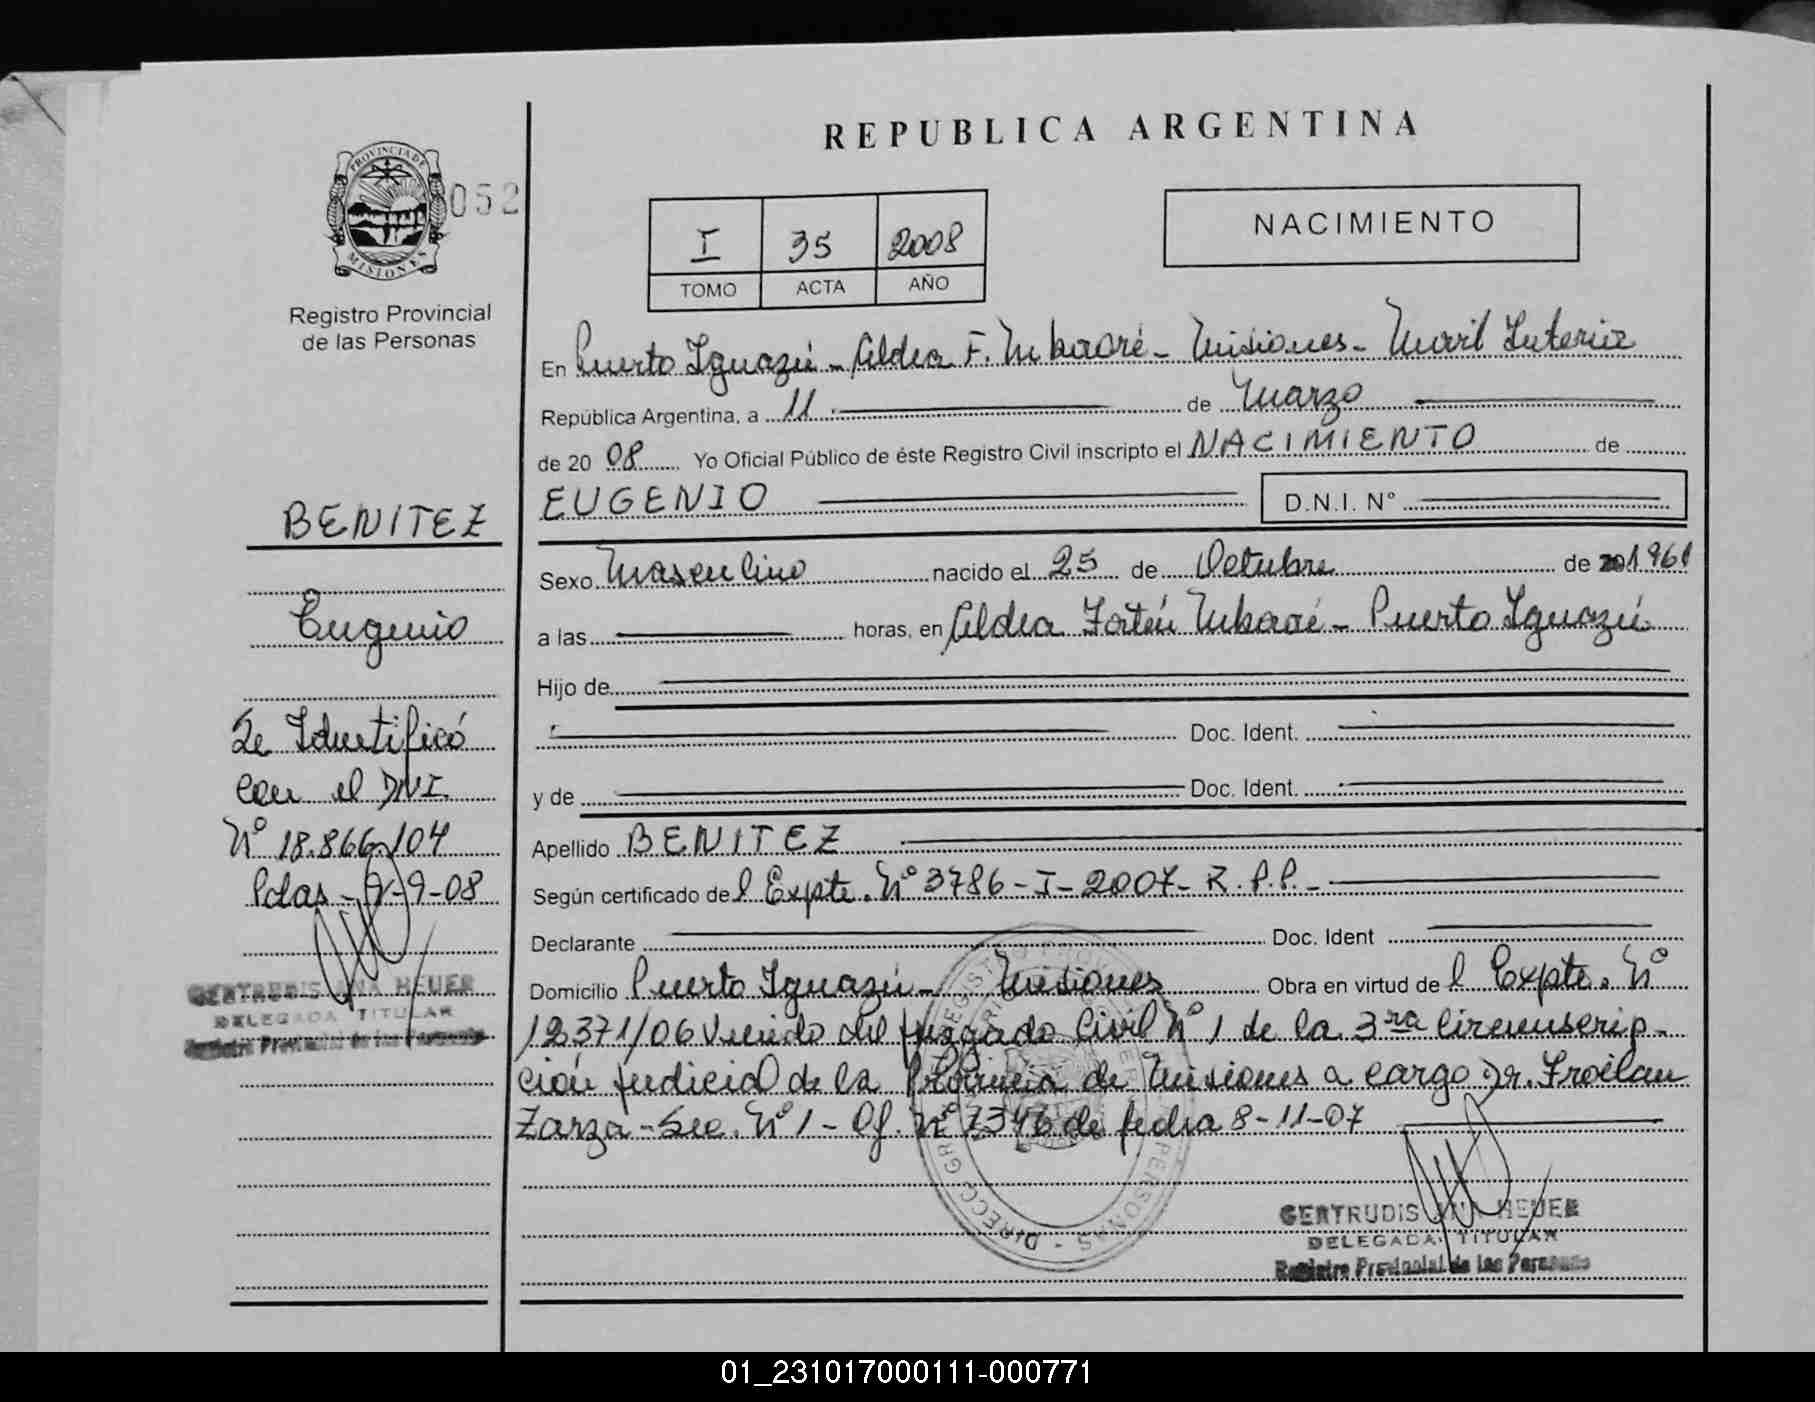 REPUBLICA ARGENTINA
PROVINCIA DE
MISIONES
052
Registro Provincial
de las Personas
I 35 2008
TOMO ACTA AÑO
NACIMIENTO
En Puerto Iguazú - Aldea F. Mbororé - Misiones - Movil Interior
República Argentina, a 11 de Marzo
de 20 08 Yo Oficial Público de éste Registro Civil inscripto el NACIMIENTO de
EUGENIO D.N.I. N°
Sexo Masculino nacido el 25 de Octubre de 1961
a las horas, en Aldea Fortín Mbororé - Puerto Iguazú
Hijo de
Doc. Ident.
y de Doc. Ident.
Apellido BENITEZ
Según certificado de l Expte. N° 3786-I-2007- R.P.P.-
Declarante Doc. Ident
Domicilio Puerto Iguazú - Misiones Obra en virtud de l Expte. N°
12371/06 Venido del Juzgado Civil N° 1 de la 3ra Circunscrip-
ción Judicial de la Provincia de Misiones a cargo Dr. Froilan
Zarza - Sec. N° 1 - Of. N° 7346 de fecha 8-11-07
GERTRUDIS ANA HEUER
DELEGADA TITULAR
Registro Provincial de las Personas
BENITEZ
Eugenio
Se Identificó
con el DNI
N° 18.866.104
Pdas - 9-9-08
GERTRUDIS ANA HEUER
DELEGADA TITULAR
Registro Provincial de las Personas
01_231017000111-000771